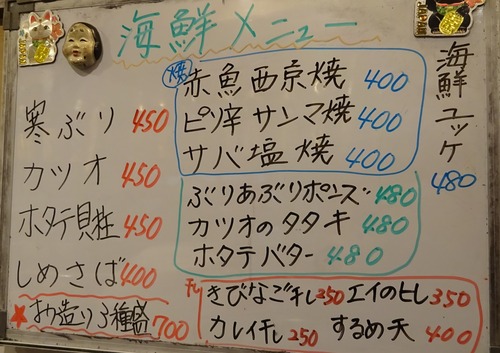 海鮮メニュー
寒ぶり 450
カツオ 450
ホタテ貝柱 450
しめさば 400
★お造り3種盛 700
焼
赤魚西京焼 400
ピリ辛サンマ焼 400
サバ塩焼 400
ぶりあぶりポンズ 480
カツオのタタキ 480
ホタテバター 480
干し
きびなご干し 350 エイのヒレ 350
カレイ干し 250 するめ天 400
海鮮ユッケ 480
JAPAN
JAPAN